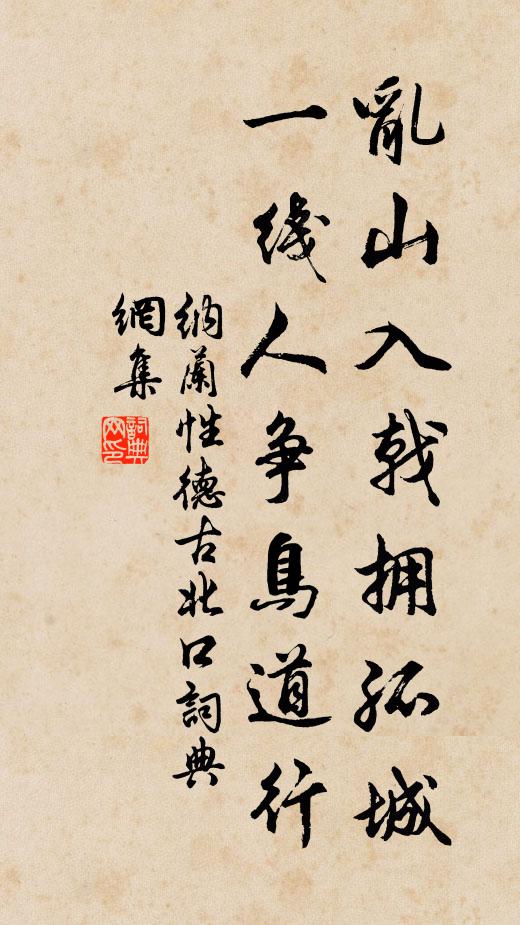 亂山入戟拥孤城
一线人争鳥道行
纳蘭性德古北口詞典
網集
詞典网印